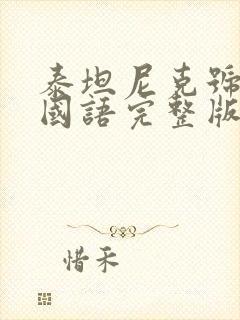 泰坦尼克號
國語完整版
惜禾